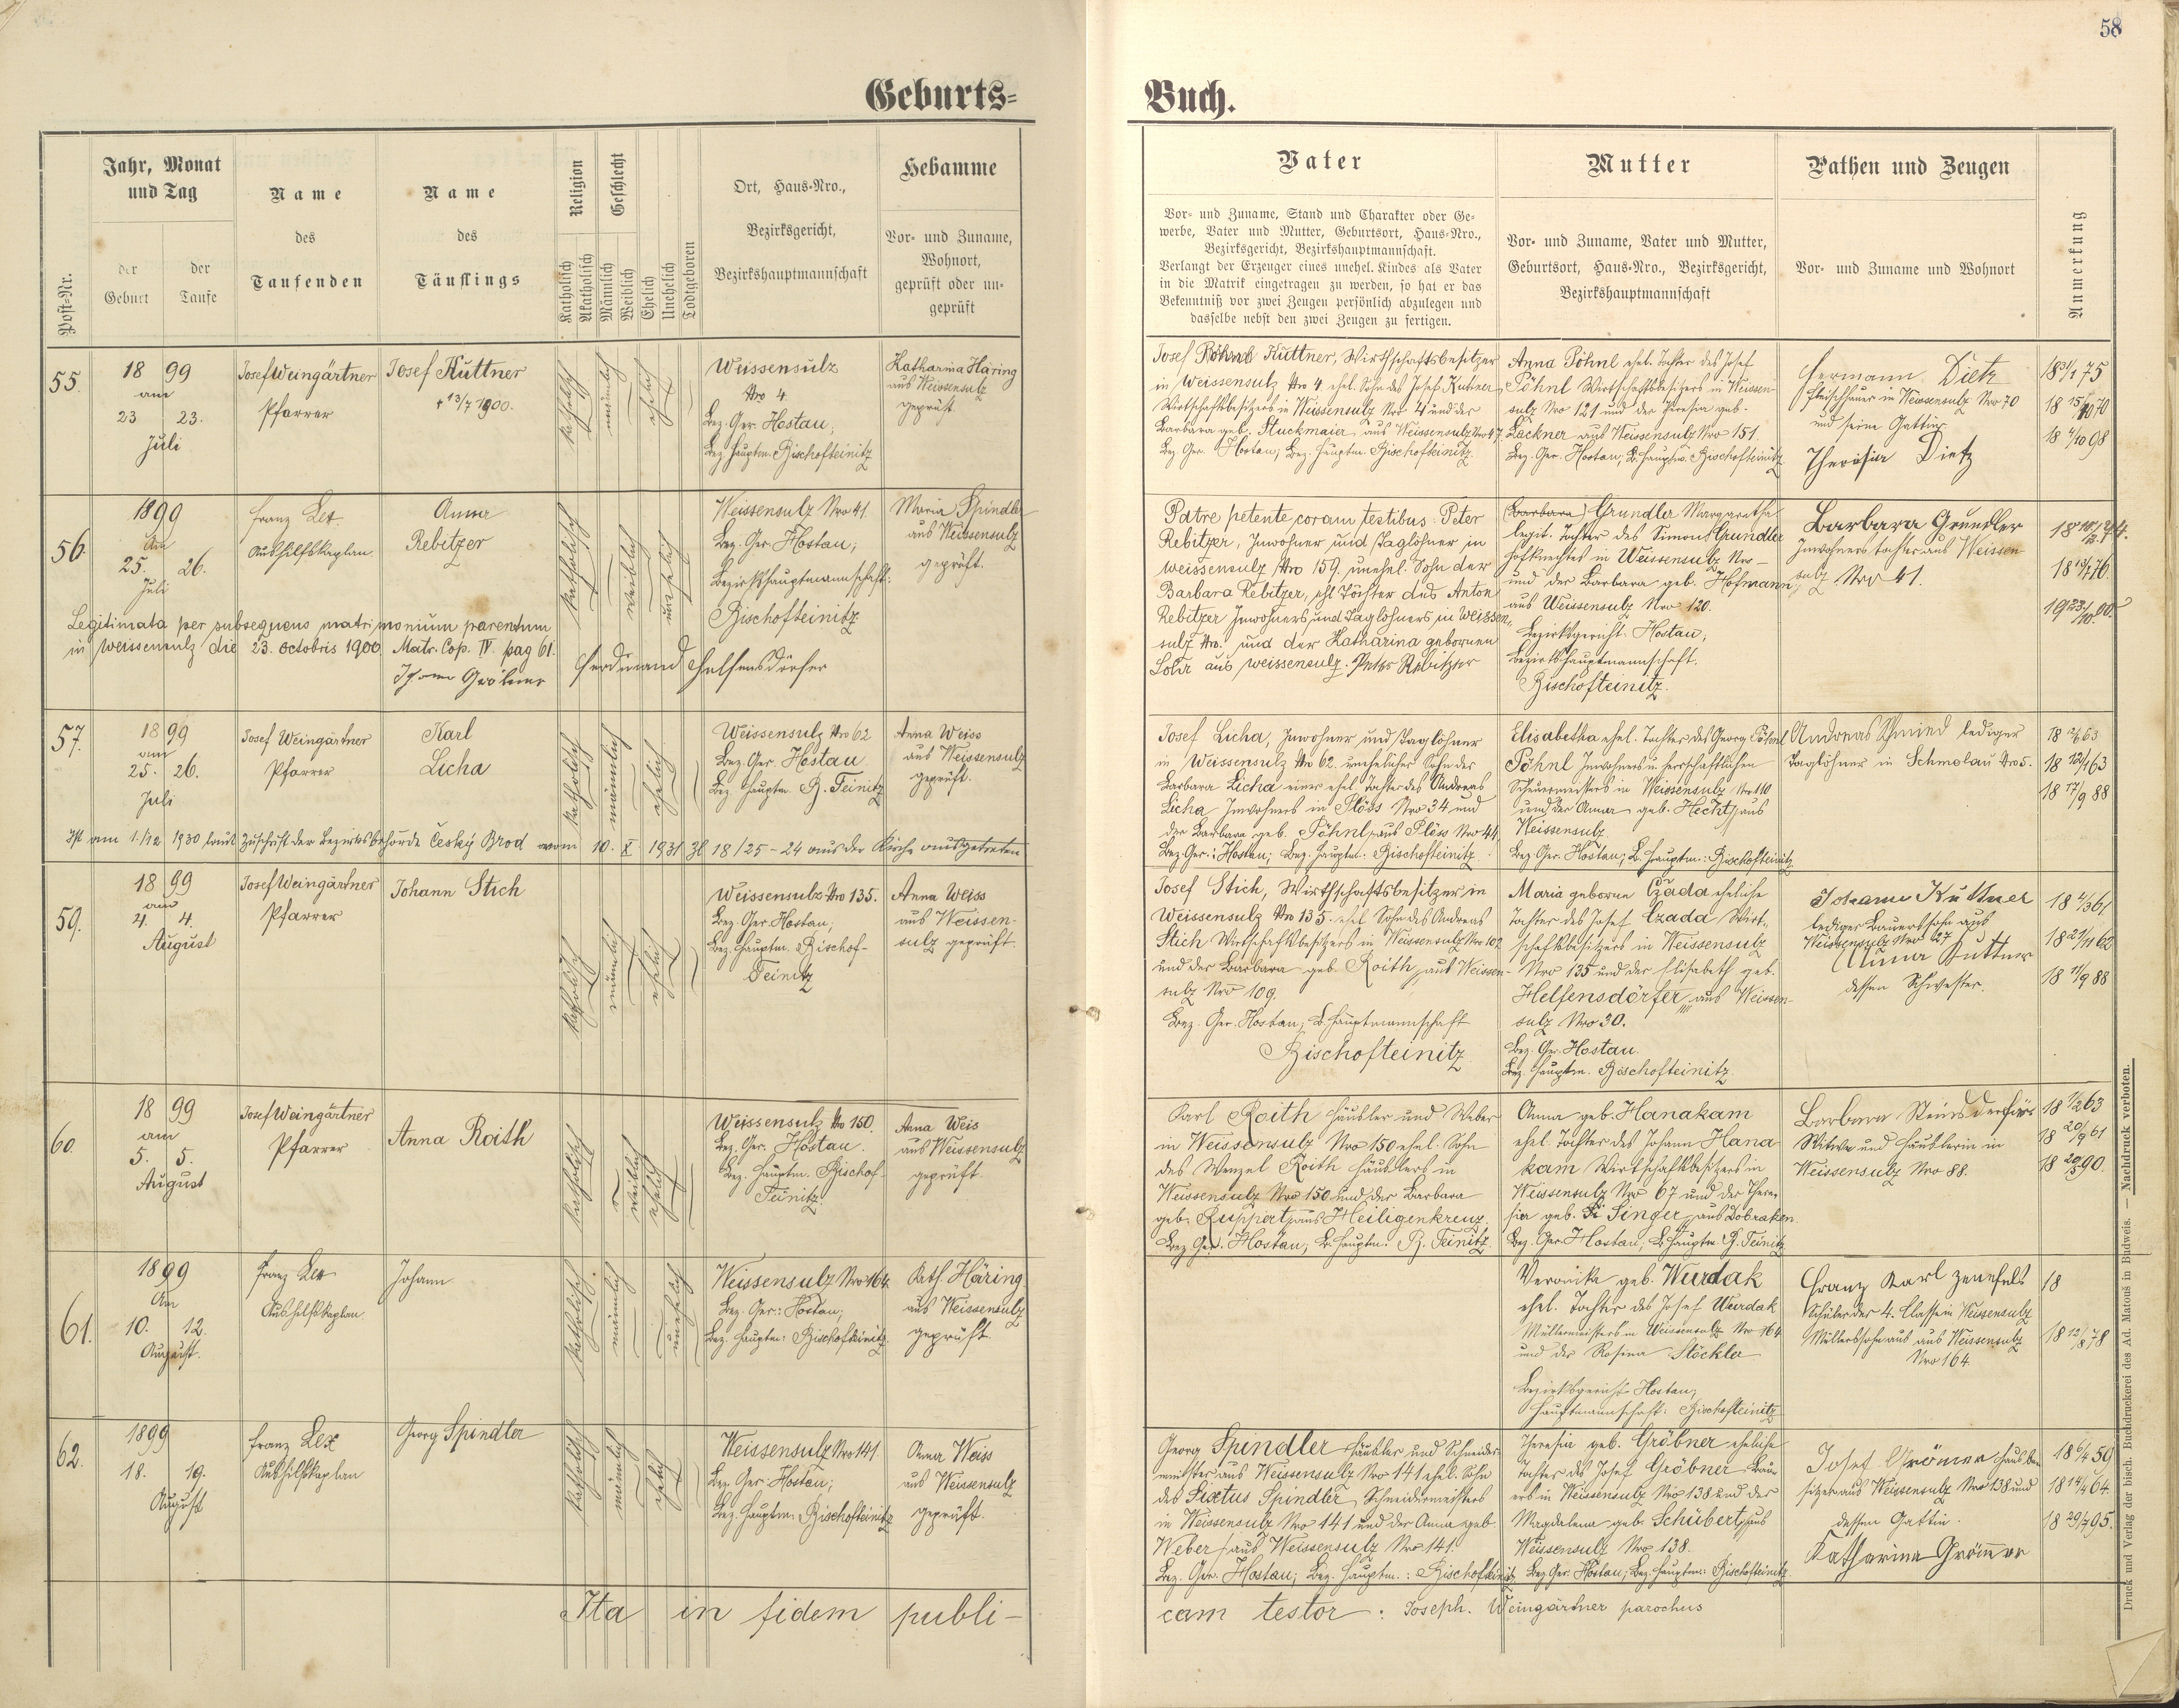 58
Geburts-
Buch.
Post-Nr.
Jahr, Monat
und Tag
der
Geburt
der
Taufe
Name
des
Taufenden
Name
des
Täuflings
Religion
Katholisch
Akatholisch
Geschlecht
Männlich
Weiblich
Ehelich
Unehelich
Todtgeboren
Ort, Haus-Nro.,
Bezirksgericht,
Bezirkshauptmannschaft
Hebamme
Vor- und Zuname,
Wohnort,
geprüft oder un-
geprüft
Vater
Vor- und Zuname, Stand und Charakter oder Ge-
werbe, Vater und Mutter, Geburtsort, Haus-Nro.,
Bezirksgericht, Bezirkshauptmannschaft.
Verlangt der Erzeuger eines unehel. Kindes als Vater
in die Matrik eingetragen zu werden, so hat er das
Bekenntniß vor zwei Zeugen persönlich abzulegen und
dasselbe nebst den zwei Zeugen zu fertigen.
Mutter
Vor- und Zuname, Vater und Mutter,
Geburtsort, Haus-Nro., Bezirksgericht,
Bezirkshauptmannschaft
Pathen und Zeugen
Vor- und Zuname und Wohnort
Anmerkung
55.
18 99
am
23 23.
Juli
Josef Weingärtner
Pfarrer
Josef Kuttner
+ 13/7 1900.
katholisch
männlich
ehelich
Weissensulz
Nro 4.
Bez. Ger. Hostau,
Bez. Hauptm. Bischofteinitz
Katharina Häring
aus Weissensulz
geprüft.
Josef Kuttner, Wirthschaftsbesitzer
in Weissensulz Nro 4. ehel. Sohn des Josef Kutner
Wirtschaftsbesitzers in Weissensulz Nro 4 und der
Barbara geb. Stuckmaier aus Weissensulz Nro 47.
Bez. Ger. Hostau; Bez. Hauptm. Bischofteinitz.
Anna Pöhnl ehel. Tochter des Josef
Pöhnl Wirtschaftsbesitzers in Weissen-
sulz Nro 121 und der Theresia geb.
Lackner aus Weissensulz Nro 151.
Bez. Ger. Hostau, B. Hauptm. Bischofteinitz
Hermann Dietz
Fleischhauer in Weissensulz Nro 70
und seine Gattin
Theresia Dietz
18 31/1 75
18 4/10 98
56.
1899
Am
25. 26.
Juli
Franz Lex
Aushilfskaplan.
Anna
Rebitzer
katholisch
weiblich
unehelich
Weissensulz Nro 41.
Bez. Ger. Hostau;
Bezirkshauptmannschaft:
Bischofteinitz
Maria Spindler
aus Weissensulz
geprüft.
Legitimata per subsequens matrimonium parentum
in Weissensulz die 23. octobris 1900 Matr. Cop. IV. pag 61.
Ferdinand Helfensdörfer
Patre petente coram testibus: Peter
Rebitzer, Inwohner und Taglöhner in
weissensulz Nro 159. unehel. Sohn der
Barbara Rebitzer, ehl Tochter des Anton
Rebitzer Inwohners und Taglöhners in Weissen-
sulz Nro. und der Katharina gebornen
aus weissensulz. Peter Rebitzer
(Barbara) Grundler Margaretha
legit. Tochter des Simon Grundler
Hofknechtes in Weissensulz Nro -
und der Barbara geb. Hofmann
aus Weissensulz Nro 120.
Bezirksgericht. Hostau,
Bezirkshauptmannschaft.
Bischofteinitz.
Barbara Grundler
Inwohnerstochter aus Weissen-
sulz Nro 41.
57.
18 99
am
25. 26.
Juli
Josef Weingärtner
Pfarrer
Karl
Licha
katholisch
männlich
ehelich
Weissensulz Nro 62
Bez. Ger. Hostau
Bez. Hauptm. B. Teinitz
Anna Weiss
aus Weissensulz
geprüft.
Ist am 1./12. 1930 laut Zuschrift der Bezirksbehörde Český Brod vom 10. X. 1931 Zl 18/25-24 aus der Kirche ausgetreten
Josef Licha, Inwohner und Taglöhner
in Weissensulz Nro 62. unehelicher Sohn der
Barbara Licha einer ehel. Tochter des Andreas
Licha Inwohners in Plöss Nro 34 und
der Barbara geb. Pöhnl, aus Plöss Nro 44.
Bez. Ger.: Hostau; Bez. Hauptm. Bischofteinitz
Elisabetha ehel. Tochter des Georg Pöhnl
Pöhnl Inwohners u herrschaftlichen
in Weissensulz Nro 110
und der Anna geb. Hecht, aus
Weissensulz.
Bez. Ger. Hostau; B. Hauptm.: Bischofteinitz
Andreas Schmied lediger
Taglöhner in Schmolau Nro 5.
18 12/1 63
18 17/9 88
59.
18 99
am
4. 4.
August
Josef Weingärtner
Pfarrer
Johann Stich
katholisch
männlich
ehelich
Weissensulz Nro 135.
Bez. Ger. Hostau;
Bez. Hauptm. Bischof-
Teinitz
Anna Weiss
aus Weissen-
sulz geprüft.
Josef Stich, Wirthschaftsbesitzer in
Weissensulz Nro 135. ehel. Sohn des Andreas
Stich Wirtschaftsbesitzers in Weissensulz Nro 102
und der Barbara geb. Roith, aus Weissen-
sulz Nro 109.
Bez. Ger. Hostau; B. Hauptmannschaft
Bischofteinitz
Maria geborne Czada eheliche
Tochter des Josef Czada, Wirt-
schaftsbesitzers in Weissensulz
Nro 135 und der Elisabeth geb.
Helfensdörfer, aus Weissen-
sulz Nro 30.
Bez. Ger. Hostau.
Bez. Hauptm. Bischofteinitz
Johann Kuttner
lediger Bauerssohn aus
Weissensulz Nro 27
Anna Kuttner
dessen Schwester.
18 4/3 61
18 21/11 62
18 11/9 88
60.
18 99
am
5. 5.
August
Josef Weingärtner
Pfarrer
Anna Roith
katholisch
weiblich
ehelich
Weissensulz Nro 150.
Bez. Ger. Hostau.
Bez. Hauptm. Bischof-
Teinitz.
Anna Weis
aus Weissensulz
geprüft.
Karl Roith Häusler und Weber
in Weissensulz Nro 150 ehel. Sohn
des Wenzel Roith Häuslers in
Weissensulz Nro 150 und der Barbara
geb. Ruppert, aus Heiligenkreuz.
Bez. Ger. Hostau; B. Hauptm. B. Teinitz.
Anna geb. Hanakam
ehel. Tochter des Johann Hana
kam Wirtschaftsbesitzers in
Weissensulz Nro 67 und der There-
sia geb. Singer, aus Dobraken.
Bez. Ger. Hostau; B. Hauptm. B. Teinitz
Barbara
Witwe und Häuslerin in
Weissensulz Nro 88.
18 20/9 61
61.
1899
Am
10. 12.
August.
Franz Lex
Aushilfskaplan
Johann
katholisch
männlich
unehelich
Weissensulz Nro 164.
Bez. Ger.: Hostau;
Bez. Hauptm: Bischofteinitz
Kath. Häring
aus Weissensulz
geprüft.
Veronika geb. Wurdak
ehel. Tochter des Josef Wurdak
Müllermeisters in Weissensulz Nro 164
und der Rosina Stöckler
Bezirksgericht Hostau,
Hauptmannschaft: Bischofteinitz
Franz Karl
Schüler der 4. Classe in Weissensulz
Müllerssohn aus aus Weissensulz
Nro 164.
18
18 12/8 78
62.
1899
18. 19.
August
Franz Lex
Aushilfskaplan
Georg Spindler
katholisch
männlich
ehelich
Weissensulz Nro 141
Bez. Ger. Hostau;
Bez. Hauptm: Bischofteinitz
Anna Weiss
aus Weissensulz
geprüft.
Georg Spindler Häusler und Schneider-
meister aus Weissensulz Nro 141 ehel. Sohn
des Sixtus Spindler, Schneidermeisters
in Weissensulz Nro 141 und der Anna geb.
Weber, aus Weissensulz Nro 141.
Bez. Ger. Hostau; Bez. Hauptm.: Bischofteinitz
Theresia geb. Gröbner eheliche
Tochter des Josef Gröbner Bau-
ers in Weissensulz Nro 138 und der
Magdalena geb. Schubert, aus
Weissensulz Nro 138.
Bez. Ger. Hostau; Bez. Hauptm: Bischofteinitz.
Josef Hausbe-
sitzer aus Weissensulz Nro 138 und
dessen Gattin.
Katharina
18 6/4 59
18 14/4 64.
18 29/7 95.
Ita in fidem publi-
cam testor: Joseph. Weingärtner parochus
Druck und Verlag der bisch. Buchdruckerei des Ad. Matouš in Budweis. — Nachdruck verboten.